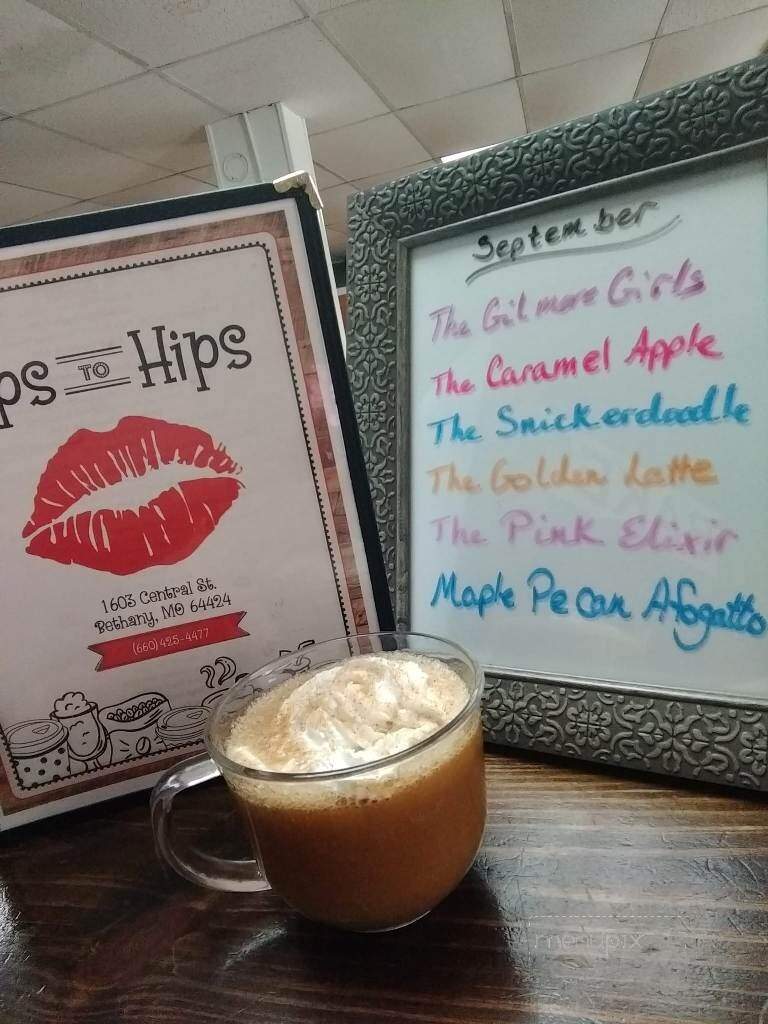 ps TO Hips
1603 Central St.
Bethany, MO 64424
(660) 425-4477
September
The Gilmore Girls
The Caramel Apple
The Snickerdoodle
The Golden Latte
The Pink Elixir
Maple Pecan Afogatto
menupix